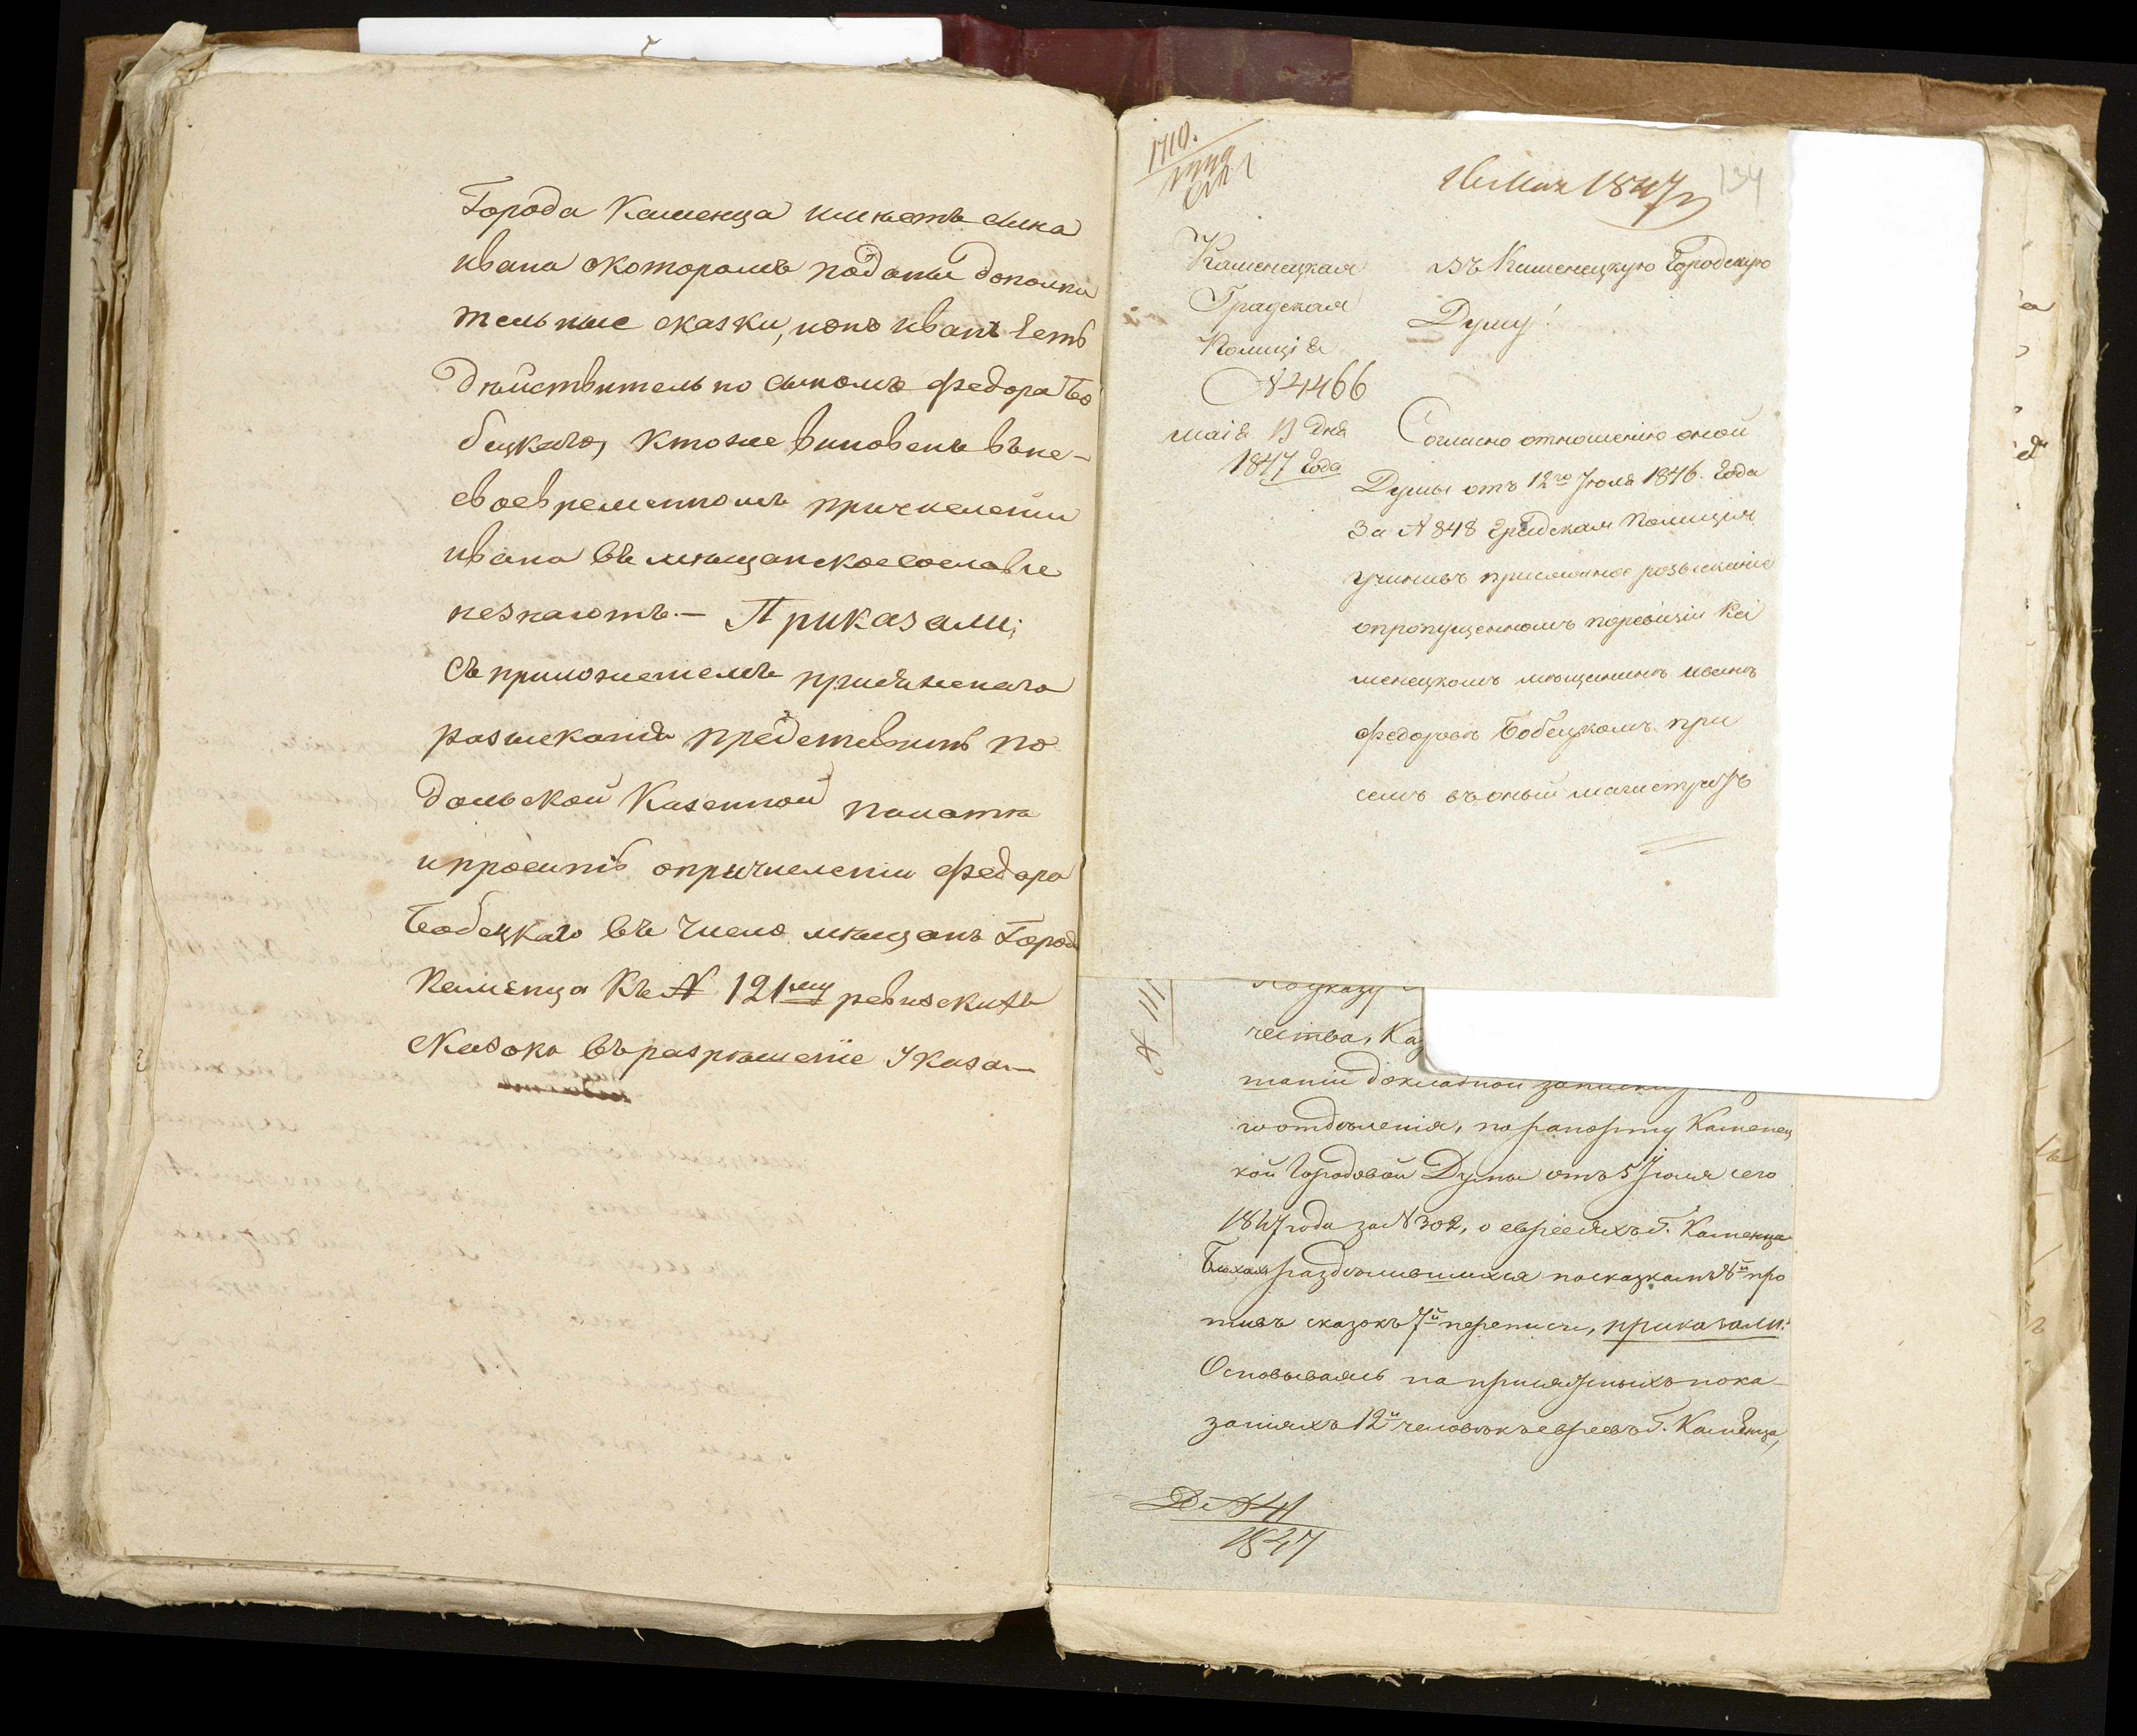 Города Каменца имѣетъ сына
ивана окоторомъ поданы дополни
тельные сказки, ионъ иванъ Есть
Дѣйствительно сыномъ федора Бо
бецкаго, ктоже виновенъ въне-
своевременномъ причислении
ивана въ мѣщанскоесословие
незнаютъ.— Приказали;
Съ приложениемъ
розысканія представить по
дольской Казенной палатѣ
ипросить опричислении федора
Бобецкаго въ число мѣщанъ Города
Каменца къ № 121му ревизскихъ
сказокъ въразрѣшение Указа—
1710.
134
1847
Каменецкая
Градская
Полиція
№ 4466
маія 13 дня
1847 Года
Въ Каменецкую Городскую
Думу!
Согласно отношению оной
Думы отъ 12го Іюля 1846. Года
За № 848 Градская Полиция
учинивъ присяжное розыскание
опропущенномъ поревизіи Ка
менецкомъ мѣщанинѣ иванѣ
федоровѣ Бобецкомъ при
семъ въоный магистратъ
По указу
чества, Каз
таніи докладной записки
го отдѣленія, порапорту Каменец
кой Городовой Думы отъ 5 Іюля сего
1847 года за № 302, о евреяхъ Г. Каменца
Блохахъ раздѣлившихся посказкамъ 8й про
тивъ сказокъ 7й переписи, приказали:
Основываясь на присяжныхъ пока-
заніяхъ 12и человѣкъ евреевъ Г. Каменца,
№ 41
1847